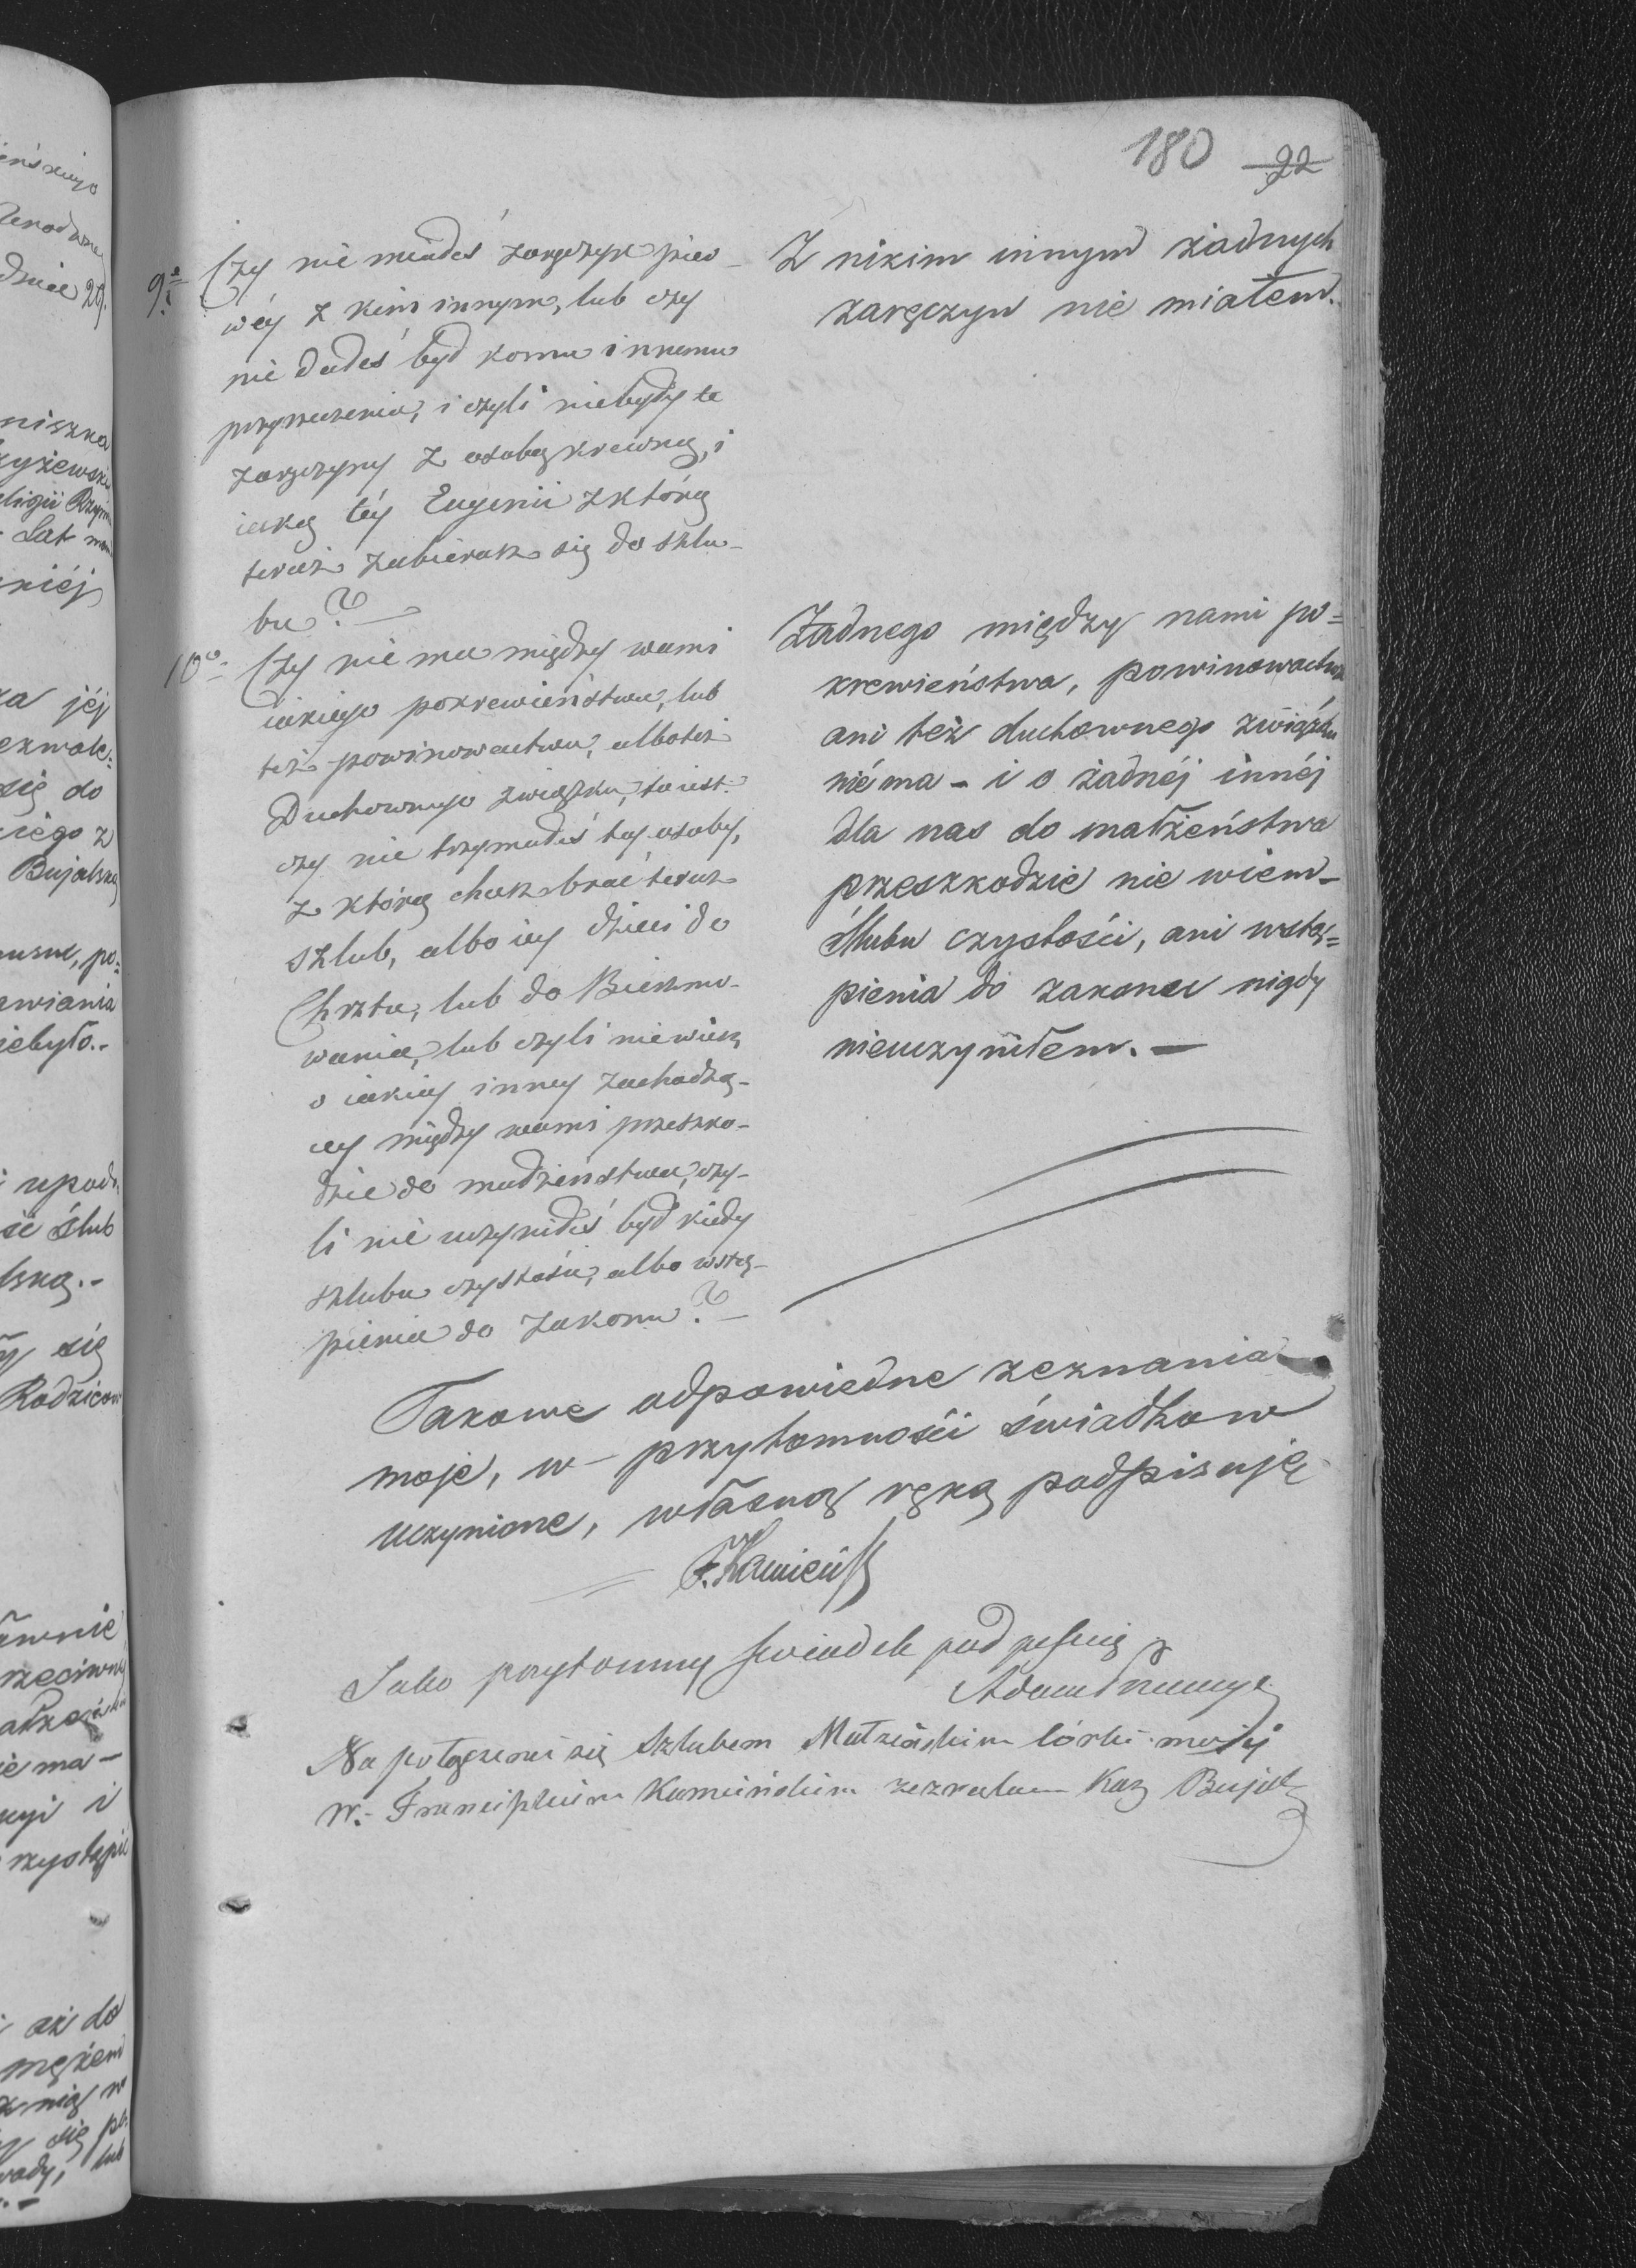 180 22
9o
Czy nie miałeś zaręczyn pier-
wéy z kim innym, lub czy
nie dałeś był komu innemu
przyrzeczenia, i czyli niebyły te
zaręczyny z osobą krewną, i
iaką téy Eugenii z którą
teraz zabierasz się do szlu-
bu? —
Z nikim innym żadnych
zaręczyn nie miałem.
10o Czy nie ma między wami
iakiego pokrewieństwa, lub
też powinowactwa, albo też
Duchownego związku, to iest:
czy nie trzymałeś tey osoby,
z którą chcesz brać teraz
szlub, albo iey dzieci do
Chrztu, lub do Bierzmo-
wania, lub czyli niewiesz
o iakiey inney zachodzą-
cey między wami przeszko-
dzie do małżeństwa, czy-
li nie uczyniłeś był kiedy
szlubu czystości, albo wstą-
pienia do zakonu? —
Żadnego między nami po=
krewieństwa, powinowactwa
ani też duchownego związku
niéma - i o żadnéj innéj
dla nas do małżeństwa
przeszkodzie nie wiem -
Ślubu czystości, ani wstą=
pienia do zakonu nigdy
nieuczyniłem. —
Takowe odpowiedne zeznania
moje, w przytomności świadków
uczynione, własną ręką podpisuję
F. Kamieńsk
Jako przytomny swiadek podpisuię
Adam
Na połączenie się szlubem Małżeńskim Córki mojéj
W. Franciszkiem Kamieńskim zezwalam Kaz Bujals
eńskiego
dnia 29.
niszka
ligii Rzym
Lat
niéj
ka jéj
się do
iégo z
Bujalską
po=
awiania
iebyło.-
upodo
ślub
lską.-
się
Rodziców
awnie
ie ma —
i
aż do
mężem
z nią
się po
lub